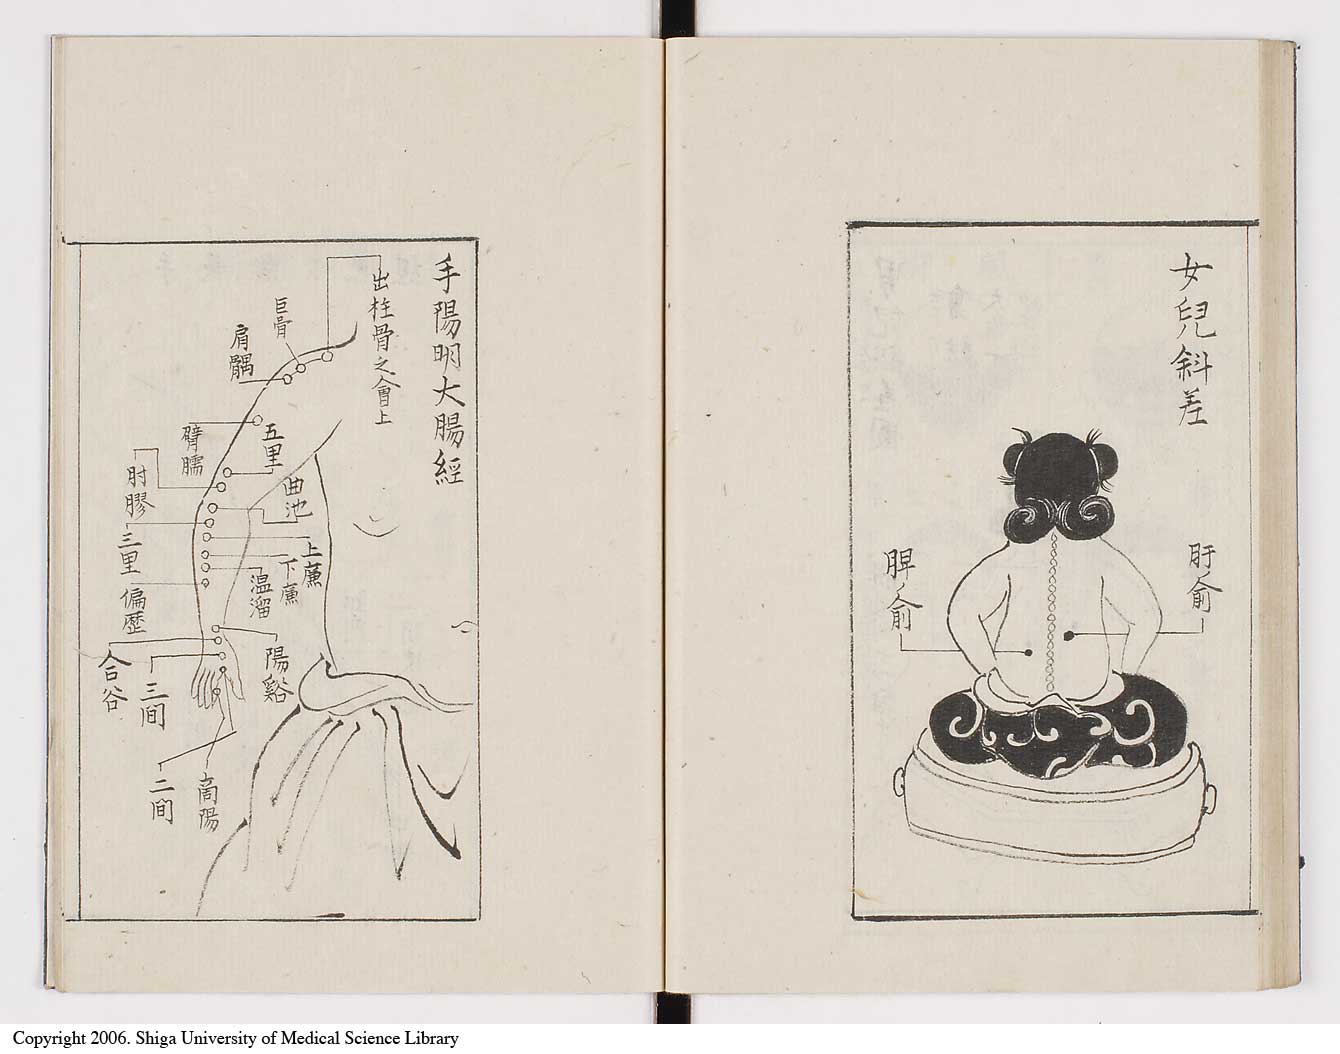 女兒斜差
肝俞
脾俞
手陽明大腸經
出柱骨之會上
巨骨
肩髃
五里
臂臑
肘髎
曲池
三里
上廉
下廉
温溜
偏歷
陽谿
合谷
三间
二间
商陽
Copyright 2006. Shiga University of Medical Science Library